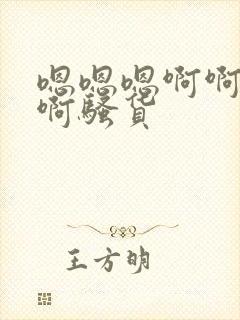 嗯嗯嗯啊啊
啊骚货
王方明